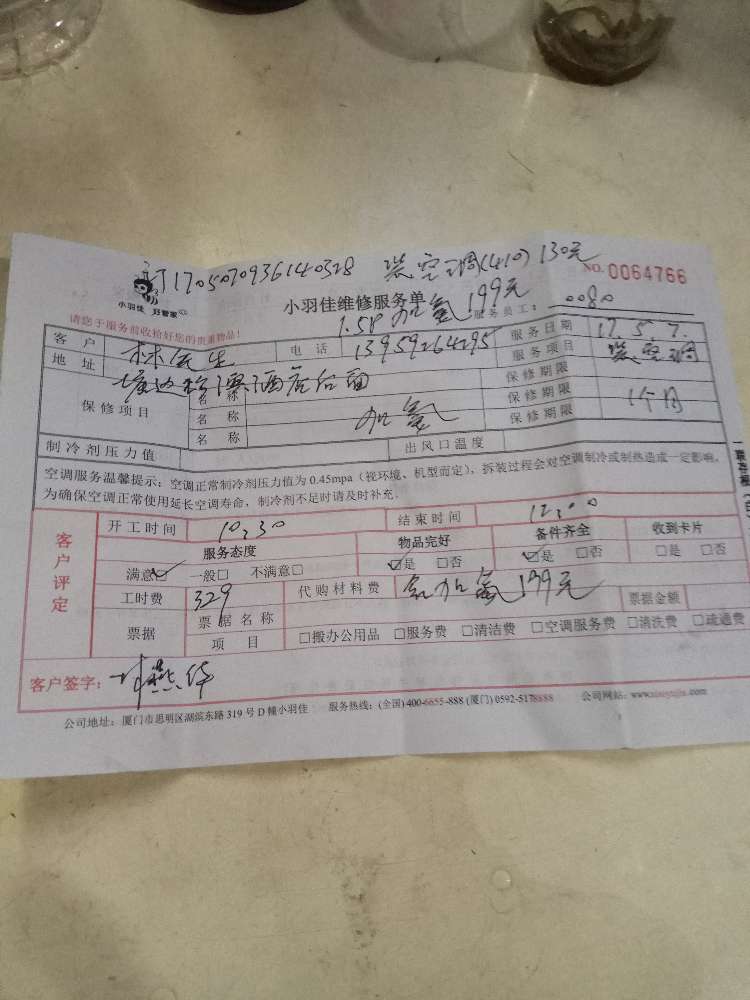 订1705070936140328 装空调(410) 130元
小羽佳 好管家
NO.0064766
小羽佳维修服务单
1.5P加氟199元
请您于服务前收拾好您的贵重物品!
服务员工: 0080
客户 林先生 电话 13959264295 服务日期 17.5.7.
地址 酒店后面 服务项目 装空调
保修项目 名称 保修期限
名称 加氟 保修期限 1个月
名称 保修期限
制冷剂压力值 出风口温度
空调服务温馨提示:空调正常制冷剂压力值为0.45mpa(视环境、机型而定),拆装过程会对空调制冷或制热造成一定影响。
为确保空调正常使用延长空调寿命,制冷剂不足时请及时补充.
客户评定
开工时间 10:30 结束时间 12:00
服务态度 物品完好 备件齐全 收到卡片
满意☑ 一般□ 不满意□ ☑是 □否 ☑是 □否 □是 □否
工时费 329 代购材料费 含加氟199元
票据 票据名称 票据金额
项目 □搬办公用品 □服务费 □清洁费 □空调服务费 □清洗费 □疏通费
客户签字: 燕华
公司地址:厦门市思明区湖滨东路319号D幢小羽佳 服务热线:(全国)400-6655-888 (厦门)0592-5178888 公司网站:www.xiaoyujia.com